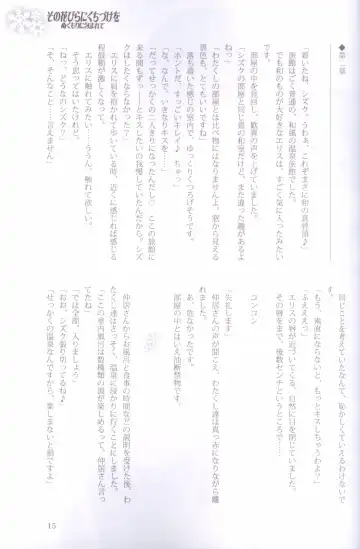 その花びらにくちづけを
ぬくもりにつつまれて
◆第二章
「着いたね、シズク。うわぁ、これぞまさに和の真骨頂♪」
旅館はごく普通の、和風の温泉旅館でした。
でも和のものが大好きなエリスは、すごく気に入ったみたい
です。
部屋の中を見回し、歓喜の声を上げていました。
「シズクの部屋と同じ畳の和室だけど、また違った趣がある
ねっ」
「わたくしの部屋とは比べ物になりませんよ。窓から見える
景色も、とてもいいですね」
「ホントだ、すっごいキレイ♪ ちゅっ」
「な、なんで、いきなりキスを…」
落ち着いた感じの室内で、ゆっくりくつろげそうです。
「だってせっかくの二人きりになったんだし♡ この旅館に
来る間もずっとキスしたいの我慢していたんだから。シズ
クはしたくなかったの?」
エリスと肩を抱かれて歩いている時、近くに感じれば感じる
程鼓動が激しくなって。
エリスに触れてみたい…ううん、触れて欲しい。
そう思っていたけれど。
「ねっ、どうなのシズク?」
「そ、そんなこと…言えません」
同じことを考えていたなんて、恥ずかしくていえるわけないで
す。
「もう、素直にならないと、もっとキスしちゃうわよ?」
「ふえええっ」
エリスの唇が近づいてくる。自然に目を閉じていました。
その唇をまで、後数センチというところで…
コンコン
「失礼します」
仲居さんの声が聞こえ、わたくし達は真っ赤になりながら離
れました。
あ、危なかったです。
部屋の中とはいえ油断禁物です。
仲居さんからお風呂と食事の時間などの説明を受けた後、わ
たくし達はさっそく、温泉に浸かりに行くことにしました。
「ここの室内風呂は数種類の湯が楽しめるって、仲居さん言っ
てたね」
「では全部、入りましょう」
「おお、シズク張り切ってるね♪」
「せっかくの温泉なんですから、楽しまないと損ですよ」
15